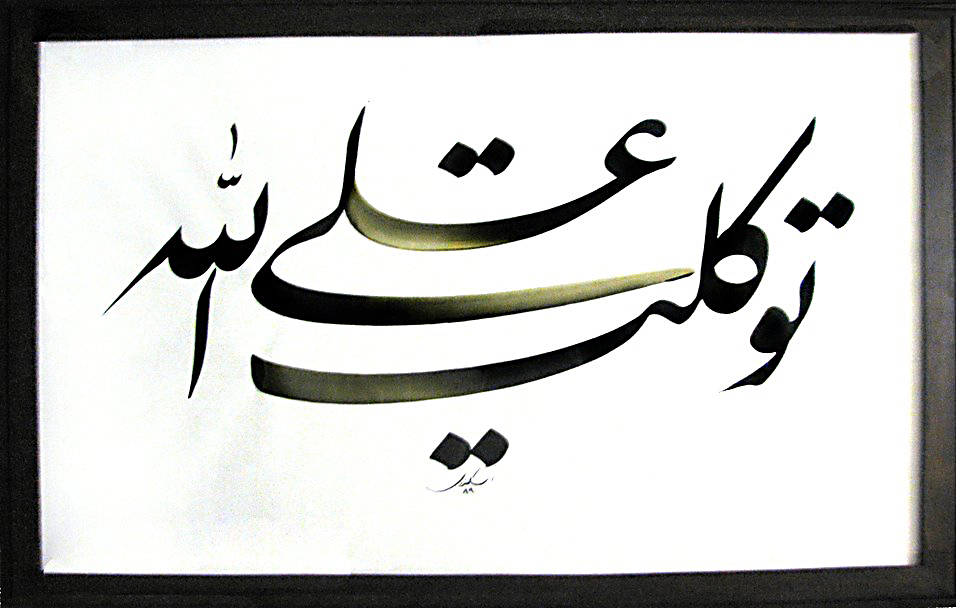 توکلت علی الله
۸۹